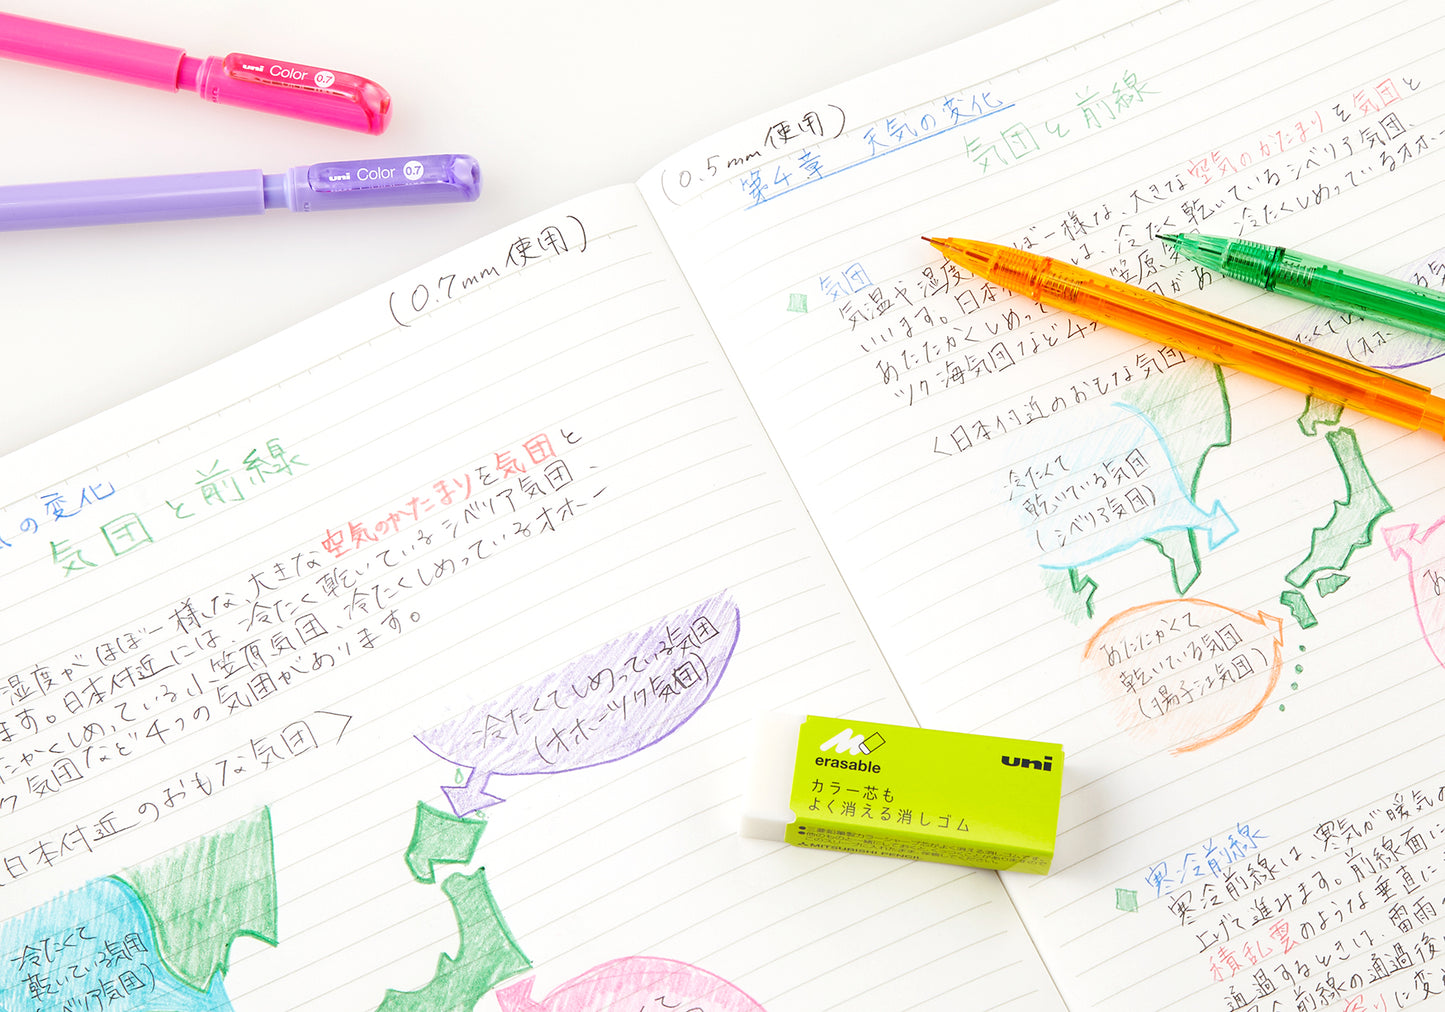 uni Color 0.7
uni Color 0.7
(0.7mm 使用)
の変化
気団と前線
湿度がほぼ一様な、大きな空気のかたまりを気団と
ます。日本付近には、冷たく乾いているシベリア気団、
たかくしめっている小笠原気団、冷たくしめっているオホー
ク気団など4つの気団があります。
日本付近のおもな気団〉
冷たくてしめっている気団
(オホーツク気団)
冷たくて
乾いている気団
ベリア気団)
て
(0.5mm 使用)
第4章 天気の変化
気団と前線
気団
気温や湿度 ぼ一様な、大きな空気のかたまりを気団と
いいます。日本 は、冷たく乾いているシベリア気団、
あたたかくしめって 笠原気 冷たくしめっているオホー
ツク海気団など4つ 団があ
〈日本付近のおもな気団
たくてし
(オホー
冷たくて
乾いている気団
(シベリア気団)
あたたかくて
乾いている気団
(揚子江気団)
あ
寒冷前線
寒冷前線は、寒気が暖気の
上げて進みます。前線面に
積乱雲のような垂直に
通過するときは、雷雨
前線の通過後
に変
erasable
uni
カラー芯も
よく消える消しゴム
MITSUBISHI PENCIL